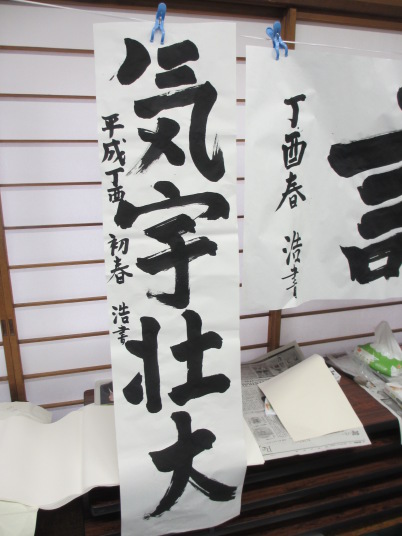 気宇壮大
平成丁酉 初春 浩書
丁酉春 浩書